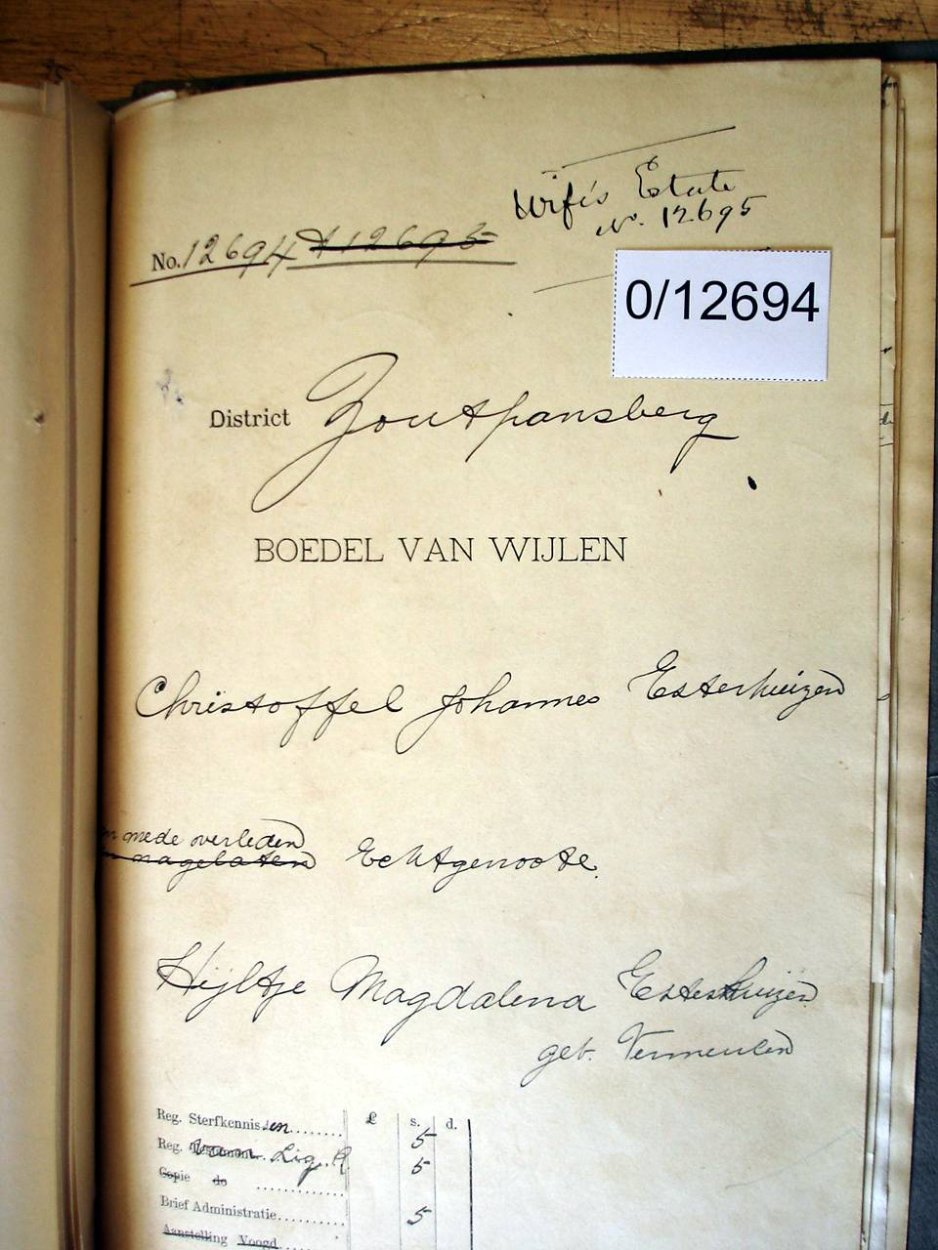 Wife's Estate
No. 12695
No. 12694 & 12695
0/12694
District Zoutpansberg
BOEDEL VAN WIJLEN
Christoffel Johannes Esterhuizen
mede overleden
nagelaten Echtgenoote.
Hijltje Magdalena Esterhuizen
geb. Vermeulen
£ s. d.
Reg. Sterfkennis.en........ 5
Reg. van Lig. R. 5
Copie do ............
Brief Administratie.......... 5
Aanstelling Voogd....